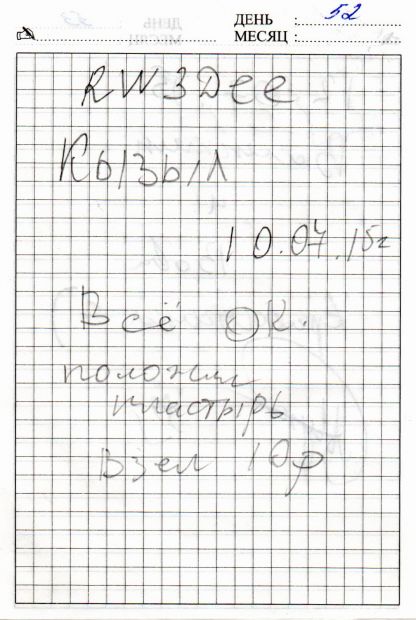 ДЕНЬ : 52
МЕСЯЦ :
RW3Dее
Кызыл
10.07.15г
Всё ОК.
положил
пластырь
взел 10р